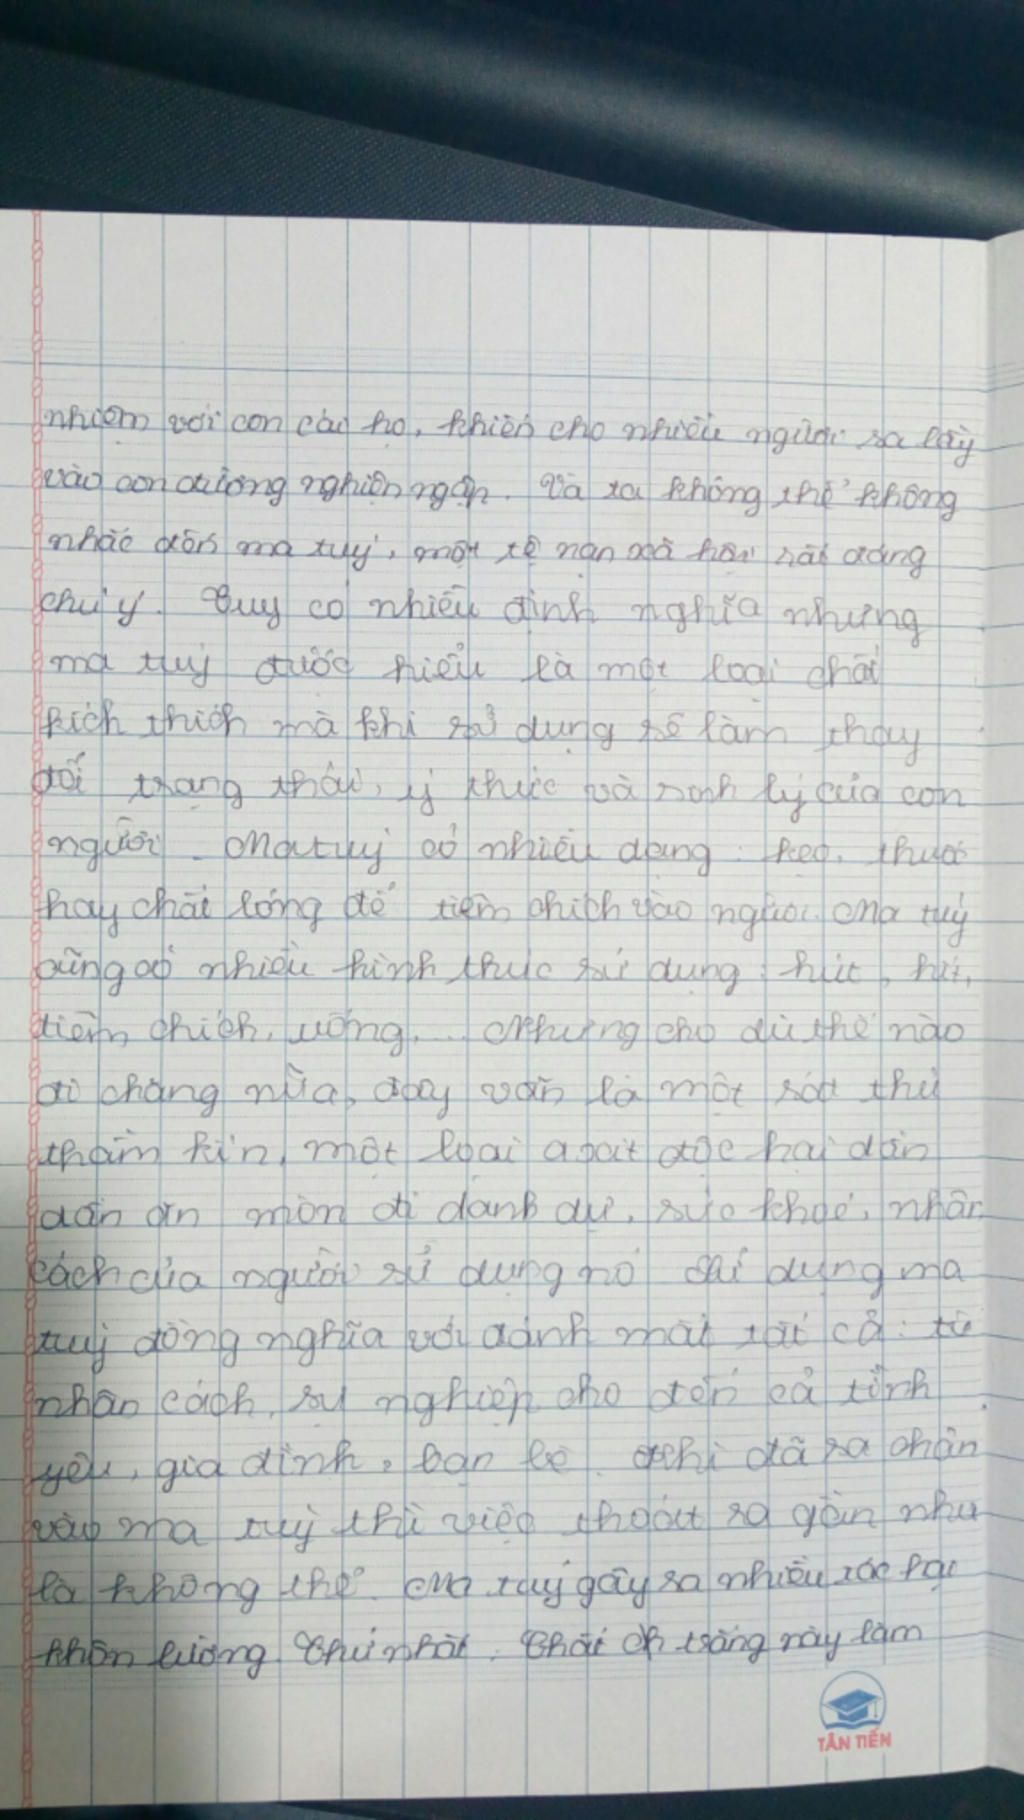 nhiệm với con cái họ, khiến cho nhiều người sa lầy
vào con đường nghiện ngập. Và ta không thể không
nhắc đến ma tuý, một tệ nạn xã hội rất đáng
chú ý. Tuy có nhiều định nghĩa nhưng
ma tuý được hiểu là một loại chất
kích thích mà khi sử dụng sẽ làm thay
đổi trạng thái, ý thức và sinh lý của con
người. Ma tuý có nhiều dạng: kẹo, thuốc
hay chất lỏng để tiêm chích vào người. Ma tuý
cũng có nhiều hình thức sử dụng: hút, hít,
tiêm chích, uống,... Nhưng cho dù thế nào
đi chăng nữa, đây vẫn là một sát thủ
thầm kín, một loại axit độc hại dần
dần ăn mòn đi danh dự, sức khoẻ, nhân
cách của người sử dụng nó. Sử dụng ma
tuý đồng nghĩa với đánh mất tất cả: từ
nhân cách, sự nghiệp cho đến cả tình
yêu, gia đình, bạn bè. Khi đã sa chân
vào ma tuý thì việc thoát ra gần như
là không thể. Ma tuý gây ra nhiều tác hại
khôn lường. Thứ nhất, chất trắng này làm
TÂN TIẾN